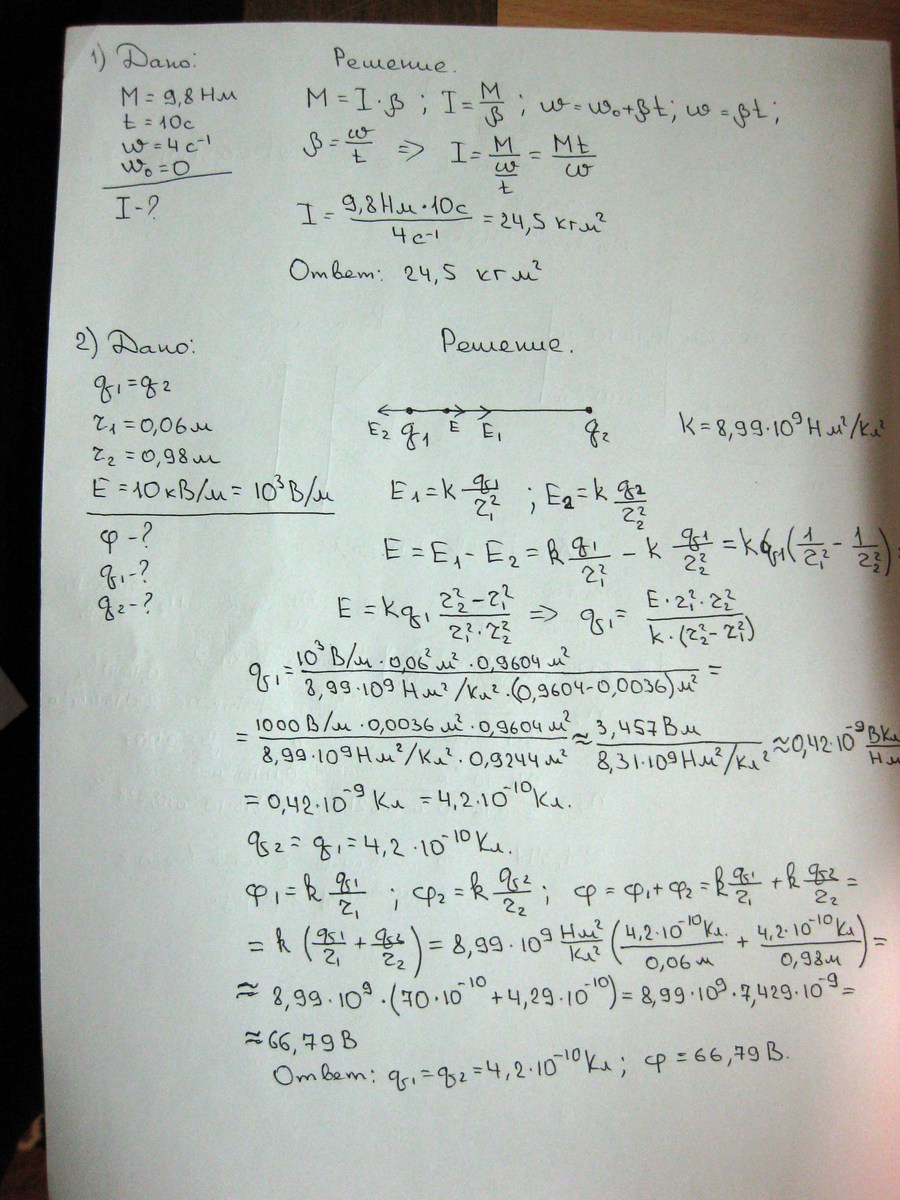 1) Дано: Решение.
M = 9,8 Нм M = I · β ; I = M/β ; ω = ω₀ + βt; ω = βt;
t = 10с
ω = 4 с⁻¹ β = ω/t => I = M/(ω/t) = Mt/ω
ω₀ = 0
I - ? I = (9,8 Нм · 10с)/(4 с⁻¹) = 24,5 кг м²
Ответ: 24,5 кг м²
2) Дано: Решение.
q₁ = q₂
r₁ = 0,06 м E₂ q₁ E E₁ q₂ K = 8,99·10⁹ Н м²/Кл²
r₂ = 0,98 м
E = 10 кВ/м = 10³ В/м E₁ = k q₁/r₁² ; E₂ = k q₂/r₂²
φ - ?
q₁ - ? E = E₁ - E₂ = k q₁/r₁² - k q₁/r₂² = kq₁(1/r₁² - 1/r₂²)=
q₂ - ? E = kq₁ (r₂² - r₁²)/(r₁² · r₂²) => q₁ = (E · r₁² · r₂²)/(k · (r₂² - r₁²))
q₁ = (10³ В/м · 0,06² м² · 0,9604 м²)/(8,99·10⁹ Н м²/Кл² · (0,9604 - 0,0036) м²) =
= (1000 В/м · 0,0036 м² · 0,9604 м²)/(8,99·10⁹ Н м²/Кл² · 0,9244 м²) ≈ (3,457 Вм)/(8,31·10⁹ Н м²/Кл²) ≈ 0,42·10⁻⁹ ВКл/Нм
= 0,42·10⁻⁹ Кл = 4,2·10⁻¹⁰ Кл.
q₂ = q₁ = 4,2 · 10⁻¹⁰ Кл.
φ₁ = k q₁/r₁ ; φ₂ = k q₂/r₂ ; φ = φ₁ + φ₂ = k q₁/r₁ + k q₂/r₂ =
= k (q₁/r₁ + q₂/r₂) = 8,99 · 10⁹ Нм²/Кл² (4,2·10⁻¹⁰ Кл./0,06 м + 4,2·10⁻¹⁰ Кл/0,98 м) =
≈ 8,99 · 10⁹ · (70·10⁻¹⁰ + 4,29·10⁻¹⁰) = 8,99·10⁹ · 7,429·10⁻⁹ =
≈ 66,79 В
Ответ: q₁ = q₂ = 4,2·10⁻¹⁰ Кл ; φ = 66,79 В.